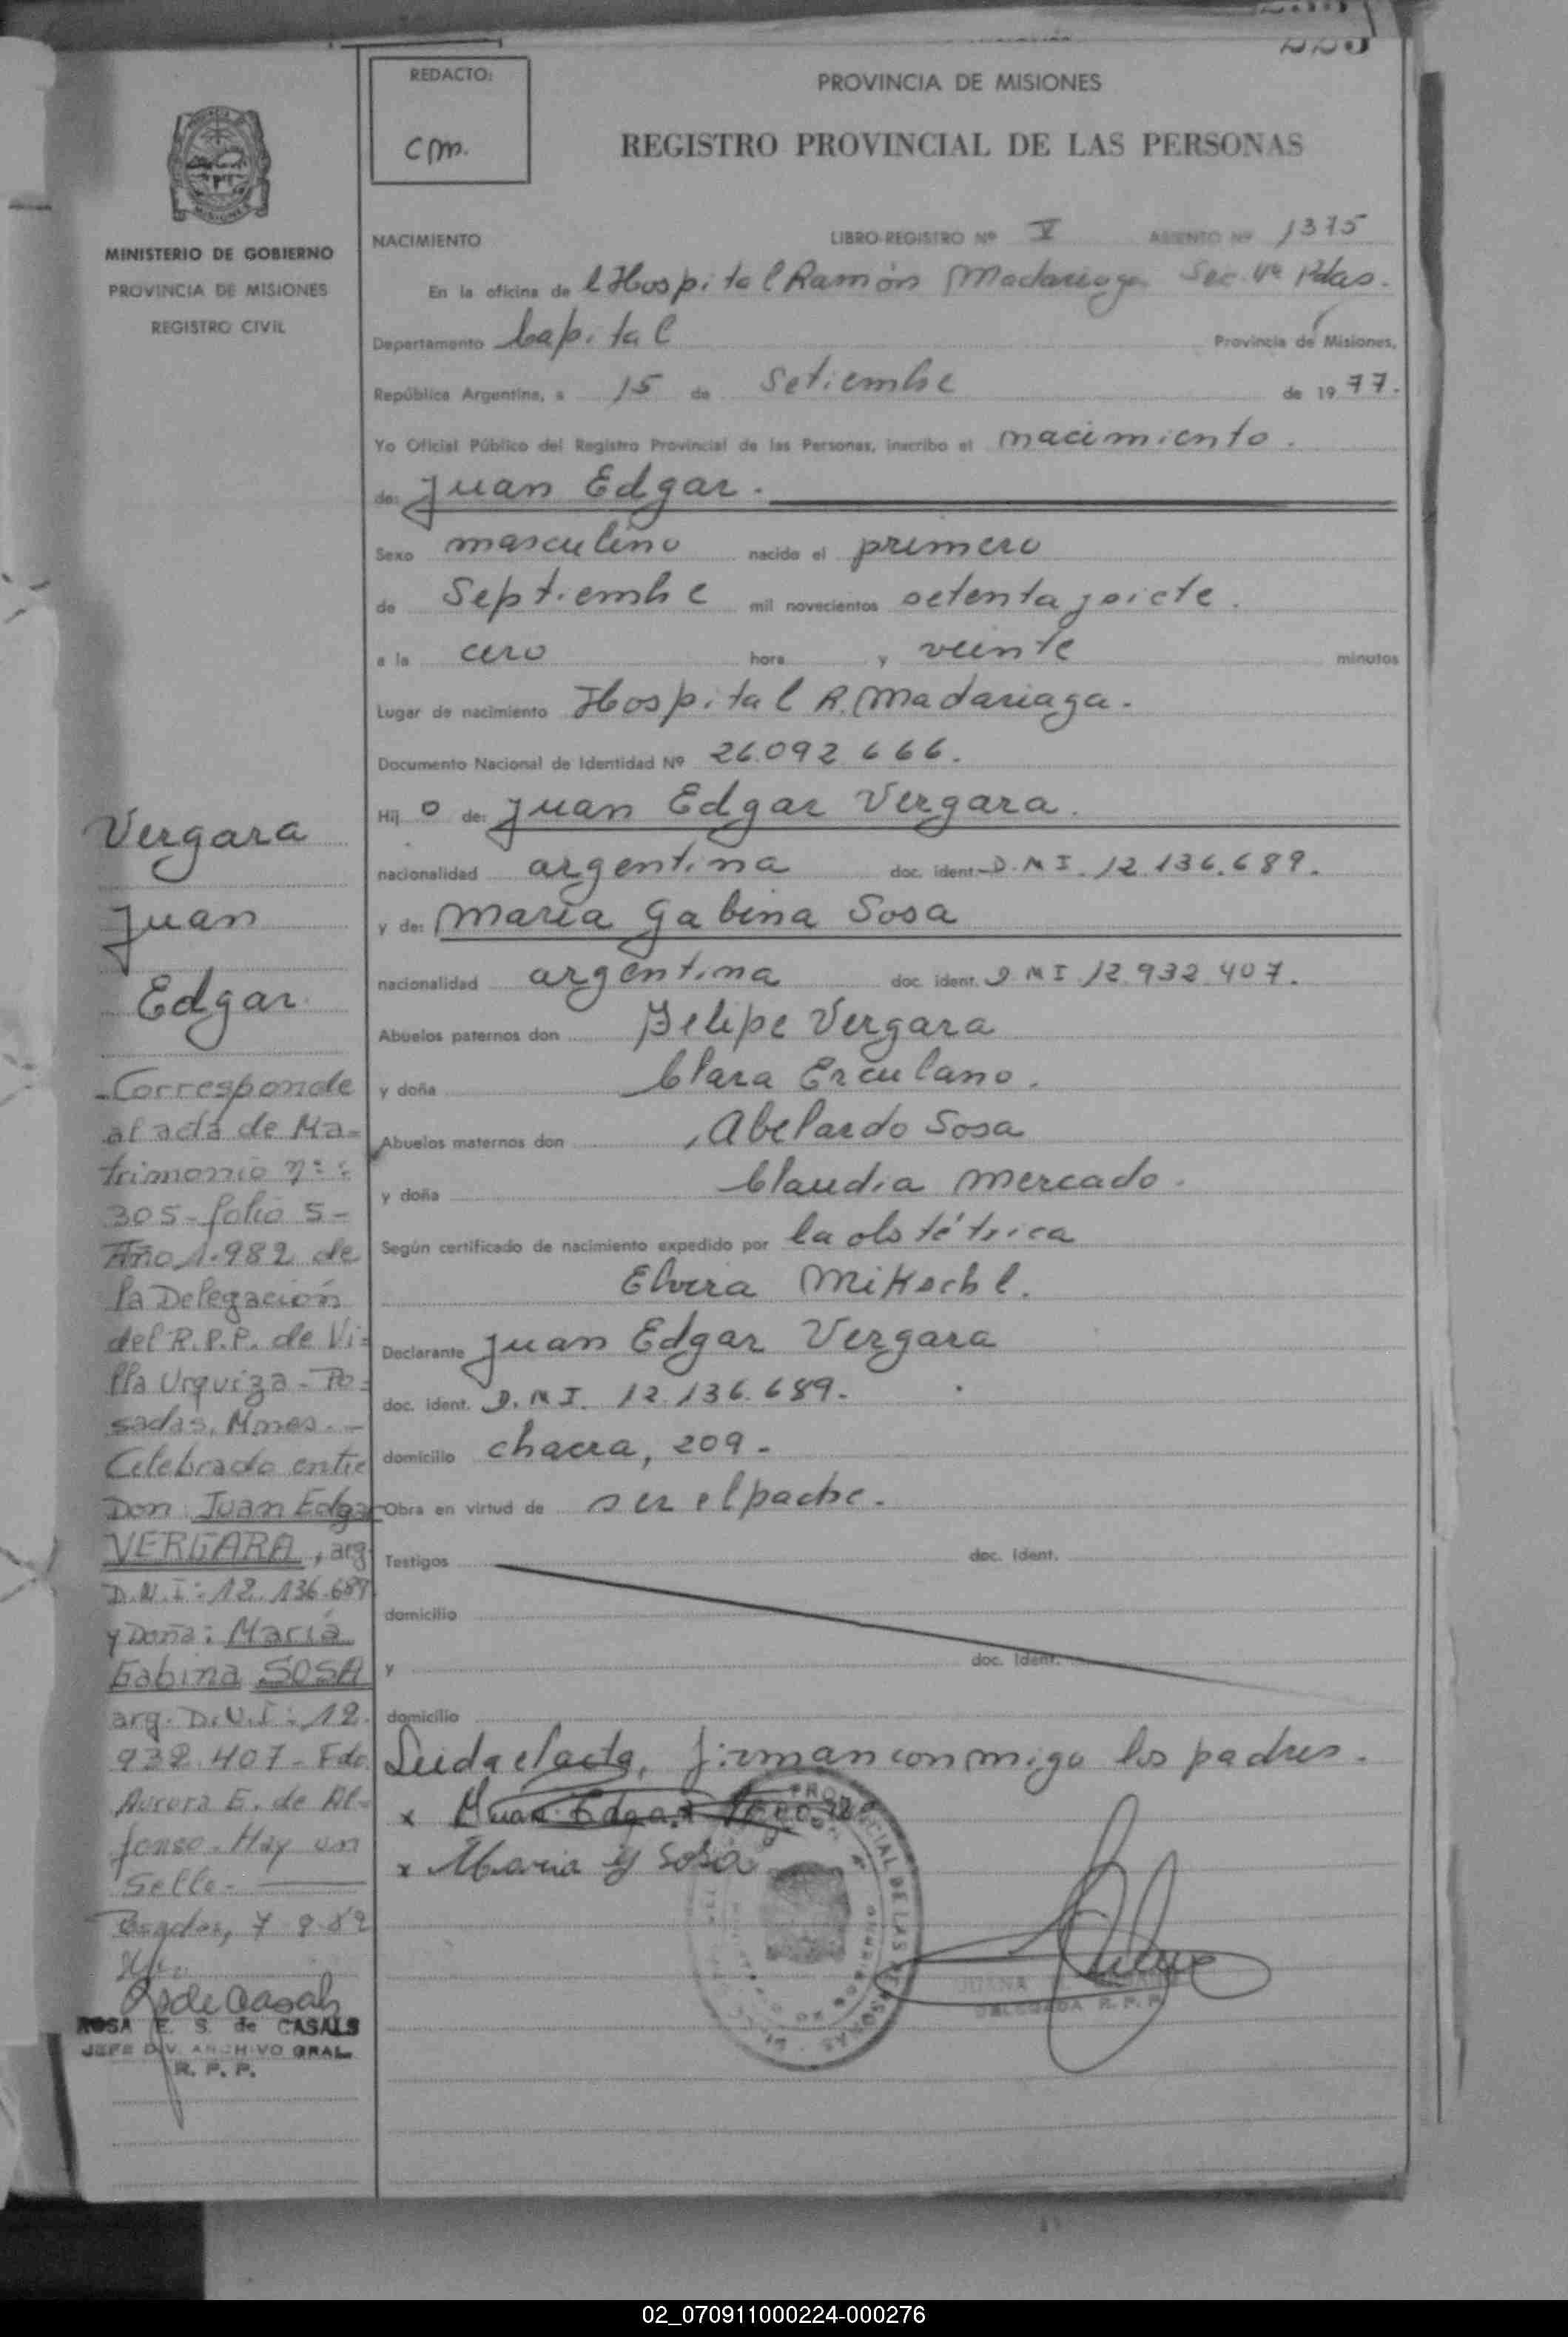 REDACTO:
cm.
PROVINCIA DE MISIONES
REGISTRO PROVINCIAL DE LAS PERSONAS
MINISTERIO DE GOBIERNO
PROVINCIA DE MISIONES
REGISTRO CIVIL
NACIMIENTO LIBRO-REGISTRO Nº V ASIENTO Nº 1375
En la oficina de l Hospital Ramón Madariaga Sec. Pdas.
Departamento Capital Provincia de Misiones,
República Argentina, a 15 de Setiembre de 1977.
Yo Oficial Público del Registro Provincial de las Personas, inscribo el nacimiento.
de: Juan Edgar.
Sexo masculino nacido el primero
de Septiembre mil novecientos setenta y siete.
a la cero hora y veinte minutos
Lugar de nacimiento Hospital R. Madariaga.
Documento Nacional de Identidad Nº 26.092.666.
Hij o de: Juan Edgar Vergara.
nacionalidad argentina doc. ident. D.N.I. 12.136.689.
y de: Maria Gabina Sosa
nacionalidad argentina doc. ident. D.N.I 12.932.407.
Abuelos paternos don Felipe Vergara
y doña Clara Erculano.
Abuelos maternos don Abelardo Sosa
y doña Claudia Mercado.
Según certificado de nacimiento expedido por la obstétrica
Elvira
Declarante Juan Edgar Vergara
doc. ident. D.N.I. 12.136.689.
domicilio chacra, 209.
Obra en virtud de ser el padre.
Testigos doc. ident.
domicilio
y doc. ident.
domicilio
Leida el acta, firman conmigo los padres.
x Juan Edgar
x Maria G Sosa
JUANA
DELEGADA R. P. P.
Vergara
Juan
Edgar
-Corresponde
al acta de Ma-
trimonio nº:
305-folio 5-
Año 1.982 de
la Delegación
del R.P.P. de Vi-
lla Urquiza-Po-
sadas, Mnes.-
Celebrado entre
Don: Juan Edgar
VERGARA, arg.
D.N.I: 12.136.689
y Doña: María
Gabina SOSA
arg. D.N.I: 12.
932.407-Fdo.
Aurora E. de Al-
fonso. Hay un
Sello.-
Posadas, 7-9-82
R de Casals
ROSA E. S. de CASALS
JEFE DIV. ARCHIVO GRAL.
R. P. P.
02_070911000224-000276